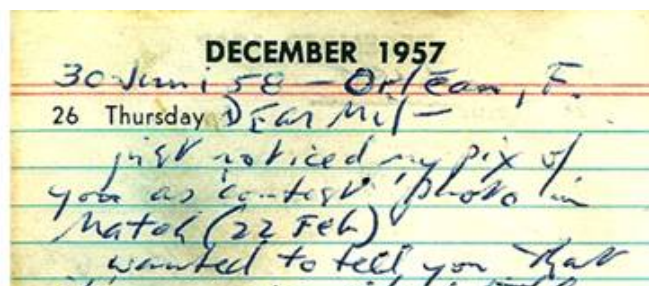 DECEMBER 1957
30 Juni 58 – Orléan, F.
26 Thursday Dear Mel –
just noticed my pix of
you as contest photo in
Match (22 Feb)
wanted to tell you that